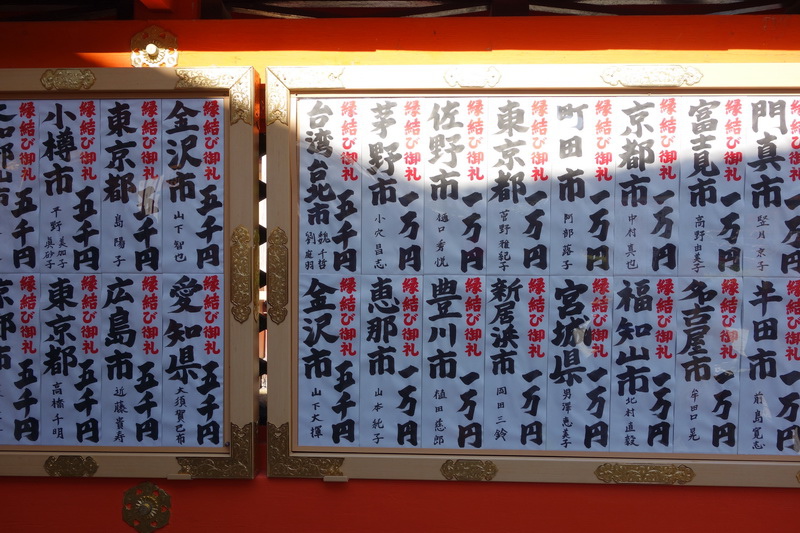 縁結び御礼 一万円
門真市
縁結び御礼 一万円
富士見市 高野由美子
縁結び御礼 一万円
京都市 中村真也
縁結び御礼 一万円
町田市 阿部蕗子
縁結び御礼 一万円
東京都 菅野雅記子
縁結び御礼 一万円
佐野市 樋口秀悦
縁結び御礼 一万円
茅野市 小穴昌志
縁結び御礼 五千円
台湾台北市 魏千哲 劉庭羽
縁結び御礼 一万円
半田市 前島寛志
縁結び御礼 一万円
名古屋市 牟田口晃
縁結び御礼 一万円
福知山市 北村直毅
縁結び御礼 一万円
宮城県 男澤恵美子
縁結び御礼 一万円
新居浜市 岡田三鈴
縁結び御礼 一万円
豊川市 植田慈郎
縁結び御礼 一万円
恵那市 山本純子
縁結び御礼 五千円
金沢市 山下大揮
縁結び御礼 五千円
金沢市 山下智也
縁結び御礼 五千円
東京都 島陽子
縁結び御礼 五千円
小樽市 平野 美加子 眞砂子
縁結び御礼 五千円
縁結び御礼 五千円
愛知県 大須賀巳布
縁結び御礼 五千円
広島市 近藤貴寿
縁結び御礼 五千円
東京都 高橋千明
縁結び御礼 五千円